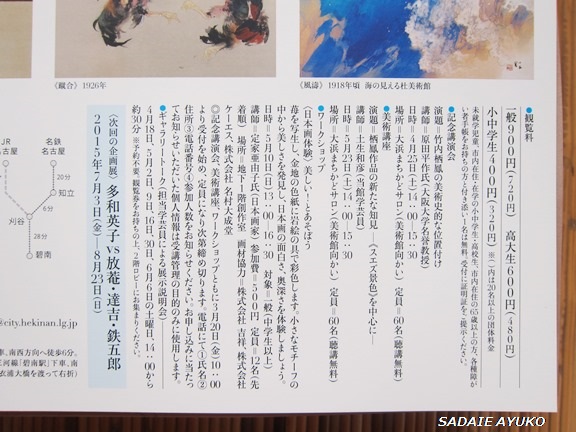 《觀合》 1926年
《風濤》 1918年頃 海の見える杜美術館
●観覧料
一般900円(720円) 高大生600円(480円)
小中学生400円(320円) ※( )内は20名以上の団体料金
未就学児童、市内在住・在学の小中学生・高校生、市内在住の65歳以上の方、各種障が
い者手帳をお持ちの方と付き添い1名は無料。受付に証明証をご提示ください。
●記念講演会
演題=竹内栖鳳の美術史的な位置付け
講師=原田平作氏(大阪大学名誉教授)
日時=4月25日(土)14:00-15:30
場所=大浜まちかどサロン(美術館向かい) 定員=60名(聴講無料)
●美術講座
演題=栖鳳作品の新たな知見―《スエズ景色》を中心に―
講師=土生和彦(当館学芸員)
日時=5月23日(土)14:00-15:30
場所=大浜まちかどサロン(美術館向かい) 定員=60名(聴講無料)
●ワークショップ
(日本画体験) 美しい!とあそぼう
苺を写生し、金地の色紙に岩絵の具で彩色します。小さなモチーフの
中から美しさを発見し、日本画の面白さ、奥深さを体験しましょう。
日時=5月10日(日)13:00-16:30 対象=一般(中学生以上)
講師=定家亜由子氏(日本画家) 参加費=500円 定員=12名(先
着順) 場所=地下1階創作室 画材協力=株式会社 吉祥、株式会社
ケーエス、株式会社 名村大成堂
◎記念講演会、美術講座、ワークショップともに3月20日(金)10:00
より受付を始め、定員になり次第締め切ります。電話にて①氏名②
住所③電話番号④参加人数をお知らせください。お申し込みに当たっ
てお知らせいただいた個人情報は受講管理の目的のみに使用します。
●ギャラリートーク(担当学芸員による展示説明会)
4月18日、5月2日、9日、16日、30日、6月6日の土曜日、14:00から
約30分 ※予約不要、観覧券をお持ちの上、2階ロビーにお集まりください。
〈次回の企画展〉 多和英子 vs 放菴・達吉・鉄五郎
2015年7月3日(金)―8月23日(日)
JR
名古屋
名鉄
名古屋
20分
知立
刈谷
6分
28分
碧南
@city.hekinan.lg.jp
車、南西方向へ徒歩6分。
河線「碧南駅」下車、南
衣浦大橋を渡って右折)
SADAIE AYUKO